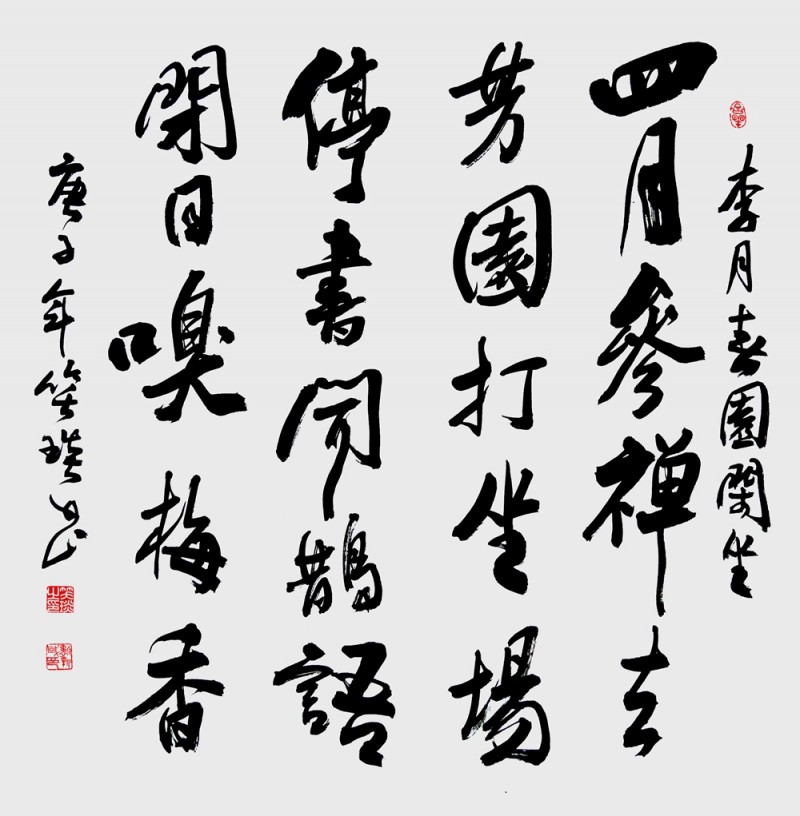 李月春園閑坐
四月參禪去
芳園打坐場
停書聞鵲語
閉目嗅梅香
庚子年笑琰